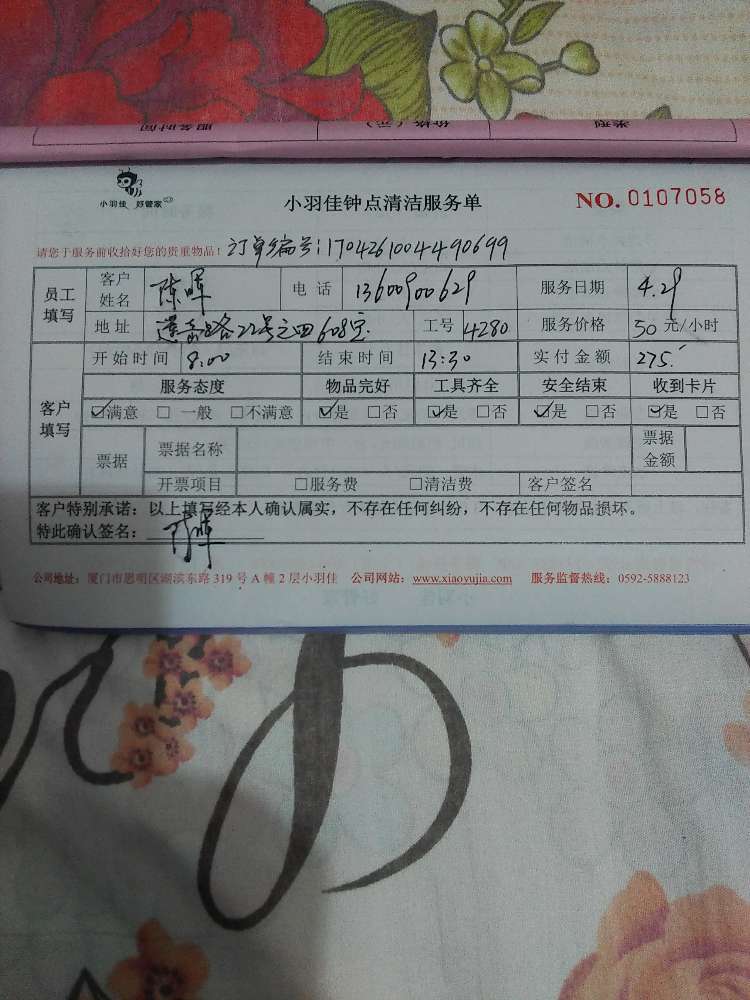 服务时间 价格(元) 类型
小羽佳 好管家
小羽佳钟点清洁服务单
NO. 0107058
请您于服务前收拾好您的贵重物品! 订单编号:1704261004490699
员工填写 客户姓名 陈晖 电话 13600900629 服务日期 4.29
地址 莲岳路22号之四608室 工号 4280 服务价格 50元/小时
客户填写 开始时间 8:00 结束时间 13:30 实付金额 275.
服务态度 物品完好 工具齐全 安全结束 收到卡片
☑满意 □一般 □不满意 ☑是 □否 ☑是 □否 ☑是 □否 ☑是 □否
票据 票据名称 票据金额
开票项目 □服务费 □清洁费 客户签名
客户特别承诺:以上填写经本人确认属实,不存在任何纠纷,不存在任何物品损坏。
特此确认签名: 陈晖
公司地址:厦门市思明区湖滨东路 319 号 A 幢 2 层小羽佳 公司网站:www.xiaoyujia.com 服务监督热线:0592-5888123